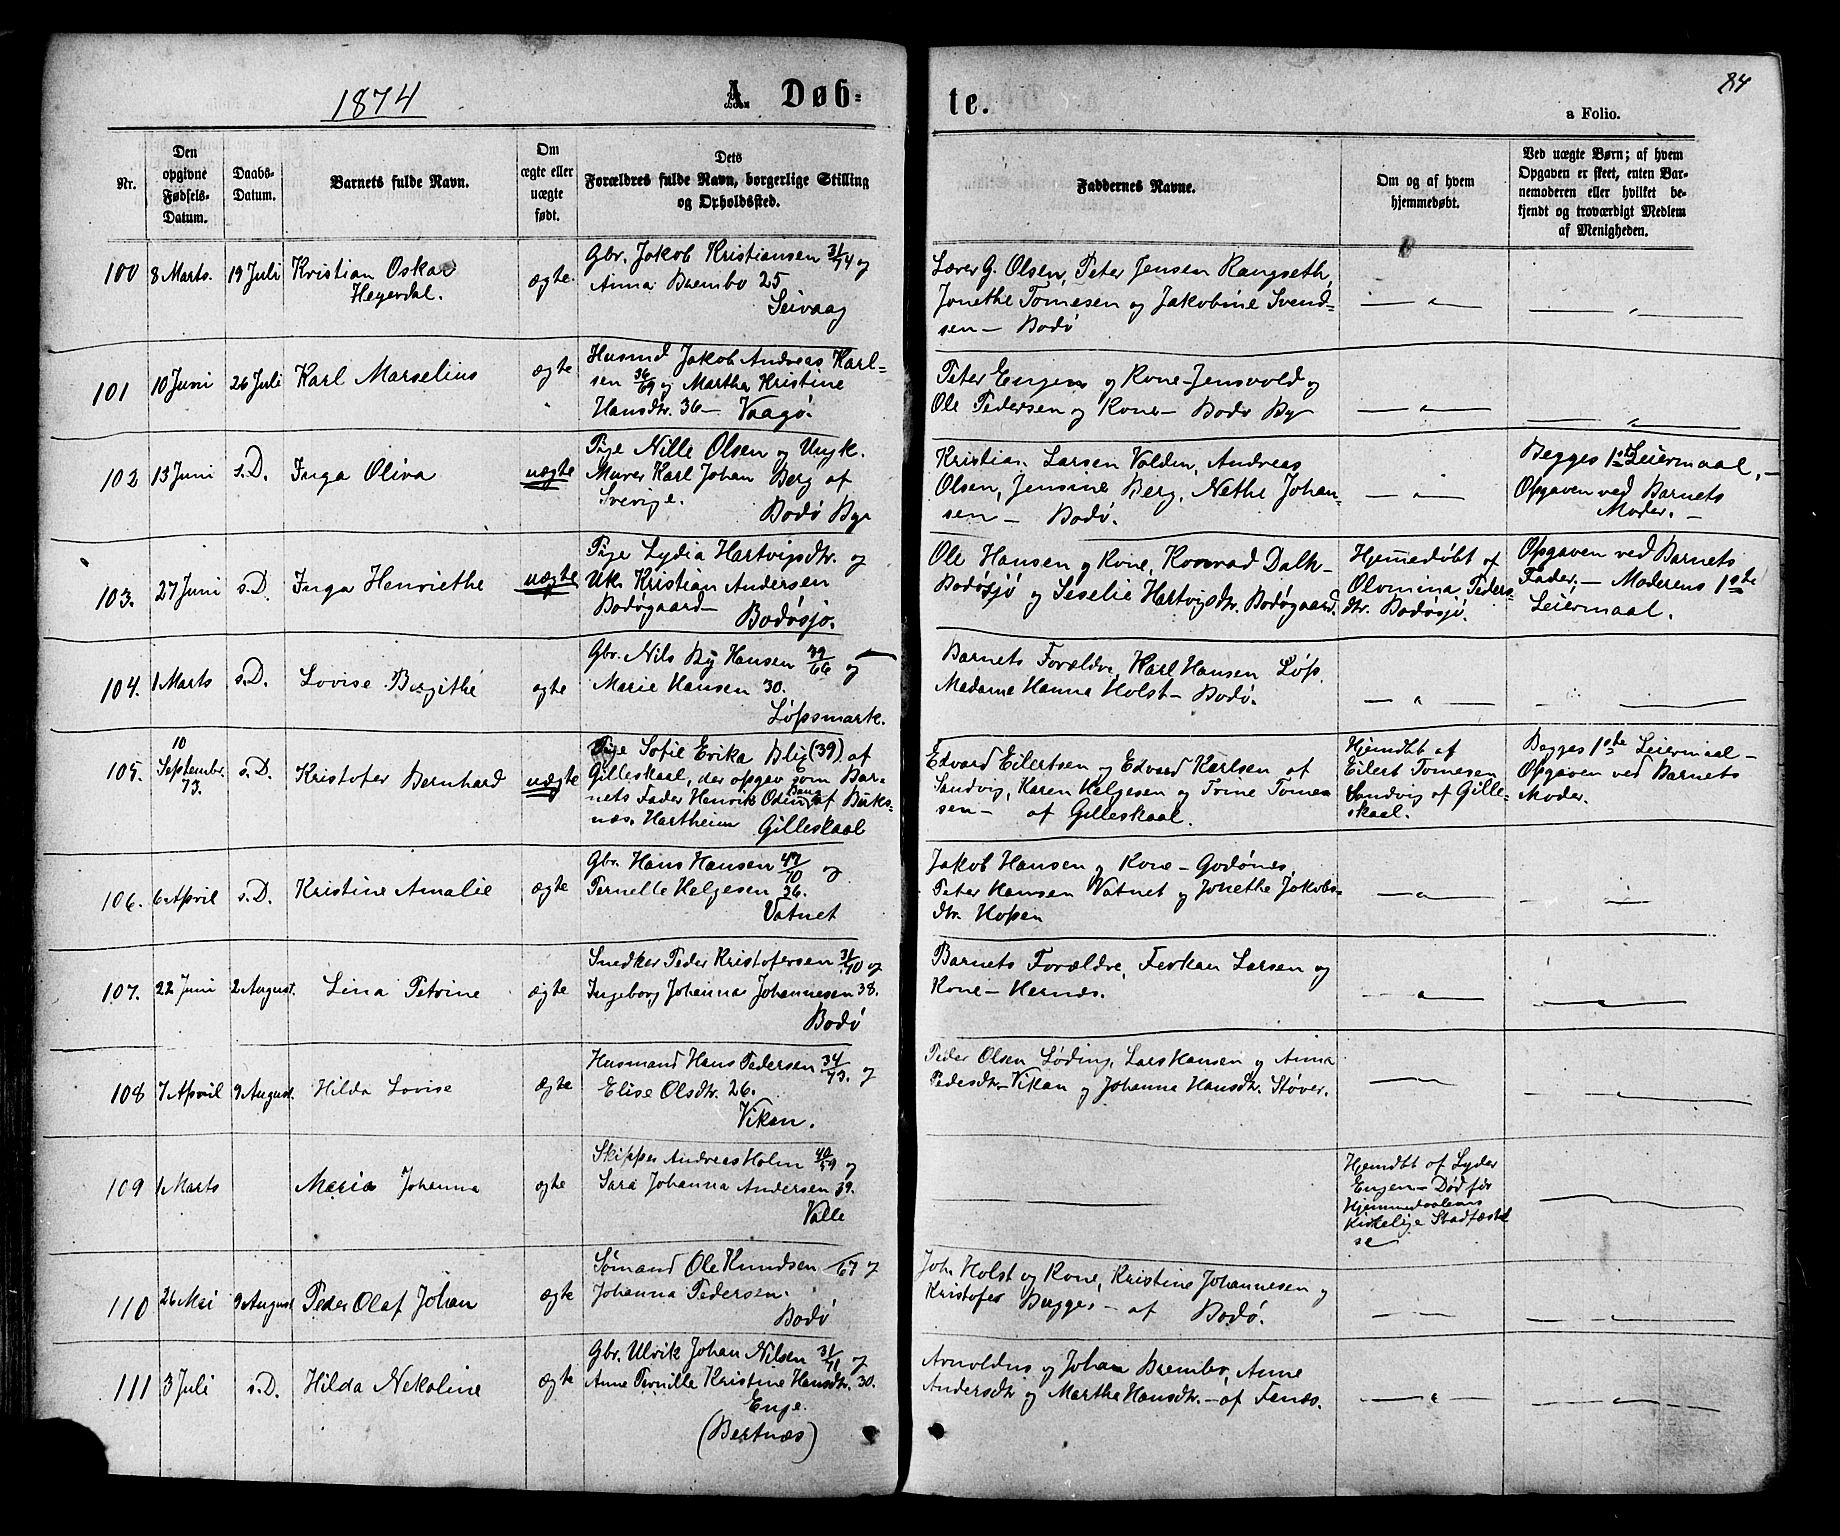 1874
A Døb-
te.
84
a Folio.
Nr.
Den
opgivne
Fødsels-
Datum.
Daabs-
Datum.
Barnets fulde Navn.
Om
ægte eller
uægte
født.
Dets
Forældres fulde Navn, borgerlige Stilling
og Opholdssted.
Faddernes Navne.
Om og af hvem
hjemmedøbt.
Ved uægte Børn; af hvem
Opgaven er skeet, enten Bar-
nemoderen eller hvilket be-
kjendt og troværdigt Medlem
af Menigheden.
100 8 Marts. 19 Juli Kristian Oskar
Heyerdal.
ægte
Gbr. Jakob Kristiansen 31/74 og
Anna Brembo 25
Seivaag
Lærer G. Olsen, Peter Jensen Rangseth,
Jonethe Tomesen og Jakobine Svend-
sen - Bodø
— " —
— " —
101 10 Juni 26 Juli Karl Marselius
ægte
Husmd Jakob Andreas Karl-
sen 36/69 og Martha Kristine
Hansdtr. 36 - Vaagø.
Peter Engen og Kone - Jensvold og
Ole Pedersen og Kone - Bodø By
— " —
— " —
102 13 Juni s.D. Inga Oliva
uægte
Pige Nille Olsen og Ungk.
Murer Karl Johan Berg af
Sverige.
Bodø By
Kristian Larsen Volden, Andreas
Olsen, Jensine Berg, Nethe Johan-
sen - Bodø.
— " —
Begges 1ste Leiermaal, -
Opgaven ved Barnets
Moder. -
103. 27 Juni s.D. Inga Henriethe
uægte
Pige Lydia Hartvigsdtr. og
Uk. Kristian Andersen
Bodøgaard -
Bodøsjø.
Ole Hansen og Kone, Konrad Dalk-
Bodøsjø og Seselie Hartvigsdtr. Bodøgaard.
Hjemedøbt af
Olomina Peders-
dtr. Bodøsjø.
Opgaven ved Barnets
Fader. - Moderens 1ste
Leiermaal.
104. 1 Marts s.D. Lovise Birgithe
ægte
Gbr. Nils By Hansen 39/66 og
Marie Hansen 30.
Løpsmark.
Barnets Forældre, Karl Hansen Løp.
Madame Hanna Holst - Bodø.
— " —
— " —
105. 10
Septembr.
73. s.D. Kristofer Bernhard
uægte
Pige Sofie Erika Blix (39) af
Gilleskaal, der opgav som Bar-
nets Fader Henrik Odin Bang af Buks-
næs. Hartheim Gilleskaal
Edvard Eilertsen og Edvard Karlsen af
Sandvig, Karen Helgesen og Tome Tome-
sen - af Gilleskaal.
Hjemdbt af
Eilert Tomesen
Sandvig af Gille-
skaal.
Begges 1ste Leiermaal -
Opgaven ved Barnets
Moder.
106. 6 April s.D. Kristine Amalie
ægte
Gbr. Hans Hansen 47/70 og
Pernelle Helgesen 26.
Vatnet
Jakob Hansen og Kone - Godønes,
Peter Hansen Vatnet og Jonethe Jakobs-
dtr. Hopen
— " —
— " —
107. 22 Juni 2 August. Lina Petrine
ægte
Snedker Peder Kristofersen 31/70 og
Ingeborg Johanna Johannesen 38.
Bodø
Barnets Forældre, Larsen og
Kone - Hernes.
— " —
— " —
108 7 April 9 August. Hilda Lovise
ægte
Husmand Hans Pedersen 34/73. og
Elise Olsdtr. 26.
Vikan.
Peder Olsen Løding, Lars Hansen og Anna
Pedesdtr. Vikan og Johanna Hansdtr. Støver.
— " —
— " —
109 1 Marts Maria Johanna
ægte
Skipper Andreas Holm 40/59 og
Sara Johanna Andersen 39.
Valle
Hjemdbt af Lyder
Engen - Død før
Hjemmedaabens
kirkelige Stadfæstel
se
— " —
110 26 Mai 9 August Peder Olaf Johan
ægte
Sømand Ole Knudsen -/67 og
Johanna Pedersen.
Bodø
Joh. Holst og Kone, Kristine Johannesen og
Kristofer Bugge, - af Bodø.
— " —
— " —
111 3 Juli s.D. Hilda Nekoline
ægte
Gbr. Ulrik Johan Nilsen 31/71 og
Anne Pernille Kristine Hansdtr. 30.
Enge.
(Bertnæs)
Arnoldus og Johan Brembo, Anne
Andersdtr og Marthe Hansdtr. - af Fenes.
— " —
— " —